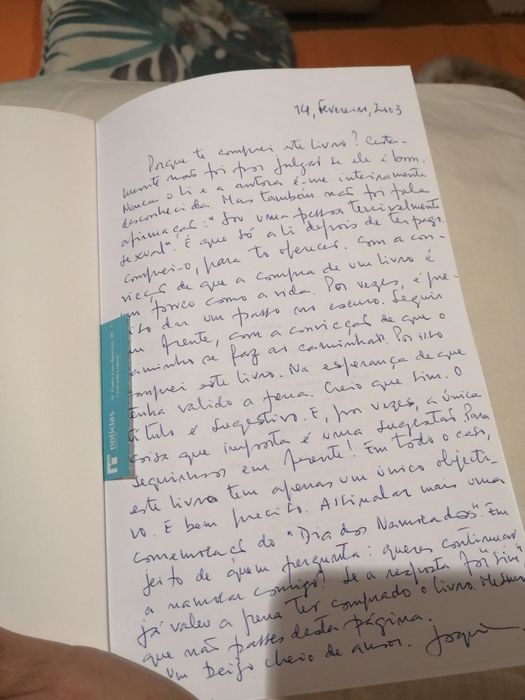 14, fevereiro, 2003
Porque te comprei este livro? Certa-
mente não foi por julgar se ele é bom.
Nunca o li e a autora é-me inteiramente
desconhecida. Mas também não foi pela
afirmação: "Sou uma pessoa terrivelmente
sexual". É que só a li depois de ter pago.
Comprei-o, para to oferecer. Com a con-
vicção de que a compra de um livro é
um pouco como a vida. Por vezes, é pre-
ciso dar um passo no escuro. Seguir
em frente, com a convicção de que o
caminho se faz ao caminhar. Por isso
comprei este livro. Na esperança de que
tenha valido a pena. Creio que sim. O
título é sugestivo. E, por vezes, a única
coisa que importa é uma sugestão para
seguirmos em frente! Em todo o caso,
este livro tem apenas um único objecti-
vo. E bem preciso. Assinalar mais uma
comemoração do "Dia dos Namorados". Em
jeito de quem pergunta: queres continuar
a namorar comigo? Se a resposta for "Sim",
já valeu a pena ter comprado o livro. Mesmo
que não passes desta página.
Um beijo cheio de amor.
noticias